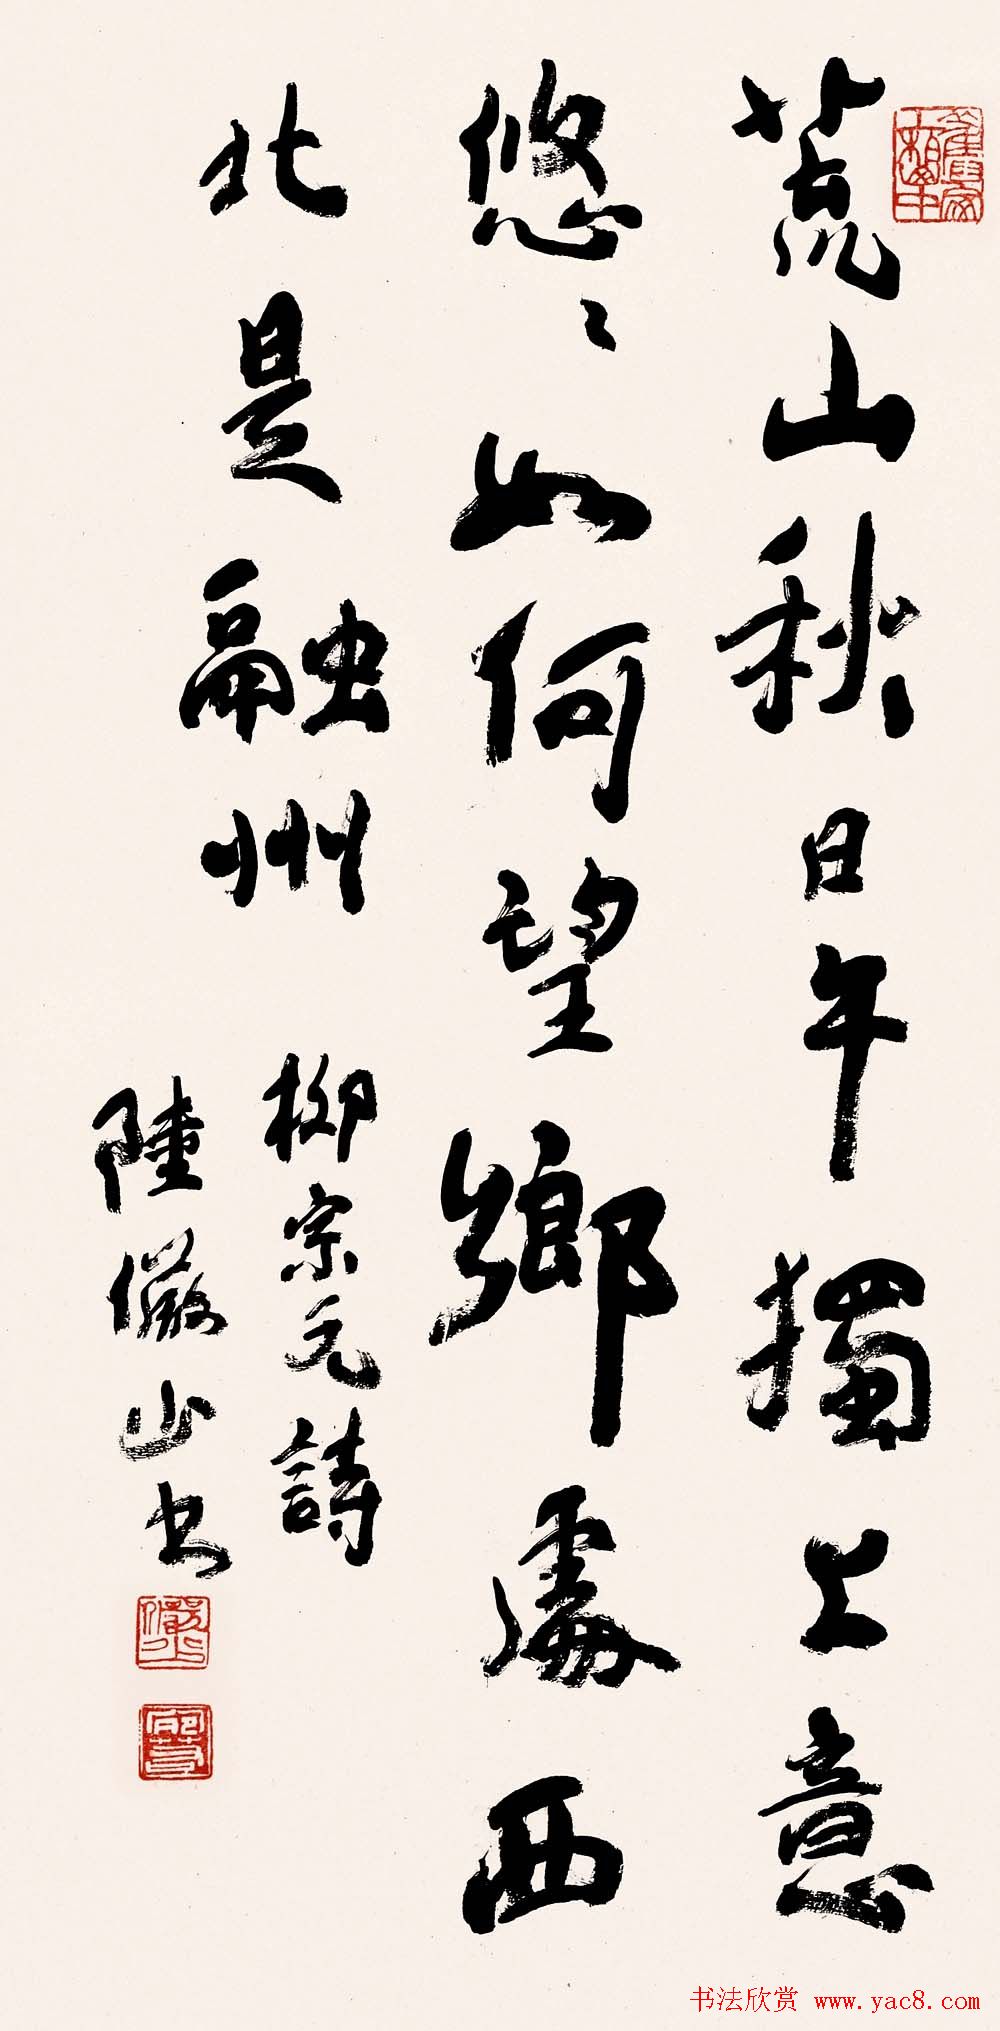 荒山秋日午獨上意
悠〻如何望鄉處西
北是融州
柳宗元詩
陸儼少書
书法欣赏 www.yac8.com